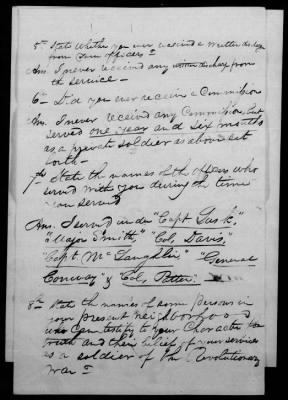 5th State whether you ever received a written discharge
from your officers =
Ans. I never received any written discharge from
the service -
6th Did you ever receive a Commission
Ans. I never received any Commission, but
served one year and six months
as a private soldier as above set
forth -
7th State the names of the officers who
served with you during the time
you served
Ans. I served under "Capt
"Major Smith," "Col. Davis,"
"Capt McLaughlin" "General
Conway" & "Col.
8th State the names of some persons in
your present neighborhood
who can testify to your Character for
truth and their belief of your services
as a soldier of the Revolutionary
War =